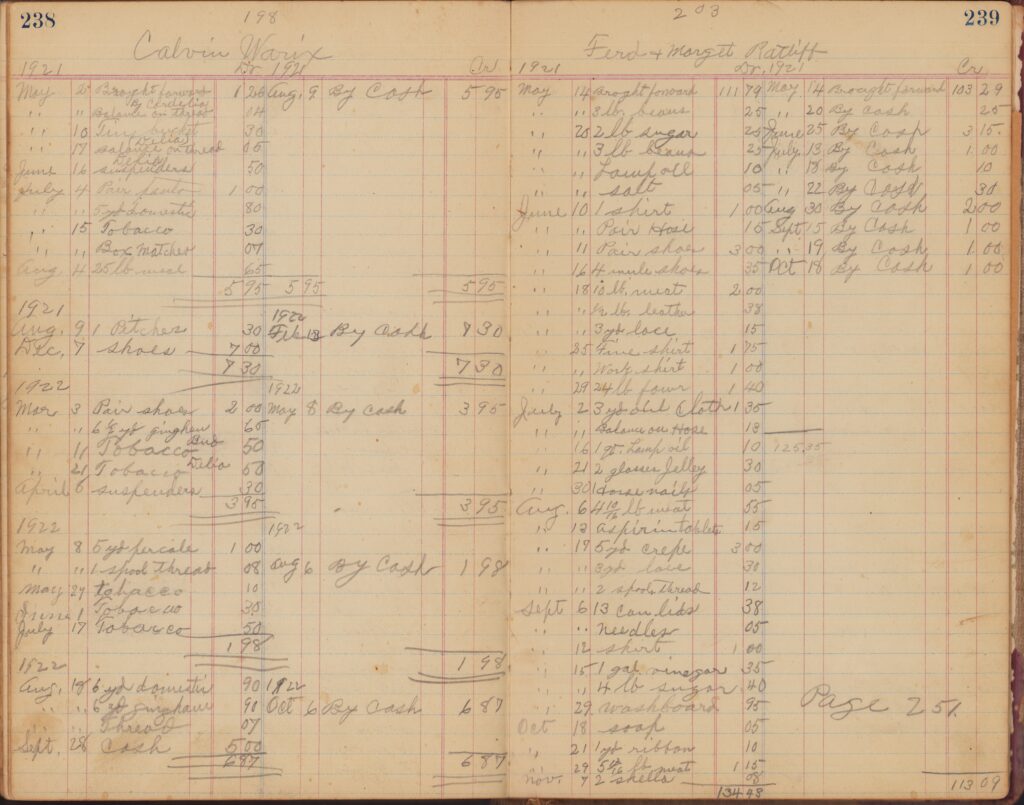 238
198
Calvin Warix
1921 Dr. 1921 Cr
May 2 Brought forward 1 26 Aug, 9 By Cash 5 95
By Cordelia
" " Balance on 04
" 10 30
Delia
" 17 balance on thread 05
June 16 suspenders 50
July 4 Pair pants 1 00
" " 5 yd domestic 80
" 15 Tobacco 30
" " Box Matches 07
Aug 4 25 lb meal 65
5 95 5 95 5 95
1921 1922
Aug. 9 1 Pitcher 30 Feb 13 By Cash 7 30
Dec, 7 shoes 7 00
7 30 7 30
1922 1922
Mar 3 Pair shoes 2 00 May 8 By Cash 3 95
" " 6 1/2 yd gingham 65
" 11 Tobacco Bud 50
" 21 Tobacco Delia 50
April 6 suspenders 30
3 95 3 95
1922 1922
May 8 5 yd percale 1 00
" " 1 spool Thread 08 Aug 6 By Cash 1 98
May 27 tobacco 10
June 1 Tobacco 30
July 17 Tobacco 50
1 98
1 98
1922
Aug, 18 6 yd domestic 90 1922
" " 6 yd gingham 90 Oct 6 By Cash 6 87
Thread 07
Sept, 28 Cash 5 00
6 87 6 87
239
203
Ferd & Margit Ratliff
1921 Dr, 1921 Cr
May 14 Broght forward 111 79 May 14 Brought forward 103 29
" " 3 lb beans 25 " 20 By Cash 25
" 20 2 lb sugar 25 June 25 By Cash 3 15.
" " 3 lb beans 25 July 13 By Cash 1 00
" " Lamp oil 10 " 18 By Cash 10
" " salt 05 " 22 By Cash 30
June 10 1 shirt 1 00 Aug 30 By Cash 2 00
" " Pair Hose 15 Sept 15 By Cash 1 00
" 11 Pair shoes 3 00 " 19, By Cash 1 00
" 16 4 mule shoes 35 Oct 18 By Cash 1 00
" 18 10 lb. meat 2 00
" " 1/2 lb. leather 38
" " 3 yd lace 15
" 25 Fine shirt 1 75
" " Work shirt 1 00
" 29 24 lb flowr 1 40
July 2 3 yd oil Cloth 1 35
" " Balance on Hose 13
" 16 1 qt. Lamp oil 10 125.35
" 21 2 glasses Jelley 30
" 30 1 Horse nails 05
Aug. 6 4 10/16 lb meat 55
" 13 Aspirin tablets 15
" 17 5 yd crepe 3 00
" " 3 yd lace 30
" " 2 spools thread 12
Sept 6 13 can lids 38
" " Needles 05
" 12 shirt 1 00
" 15 1 gal vinegar 35
" " 4 lb sugar 40
" 29 washboard 95
Page 251.
Oct 18 soap 05
" 21 1 yd ribbon 10
" 29 lb. meat 1 15
Nov. 7 2 shells 08
134 43 113 09